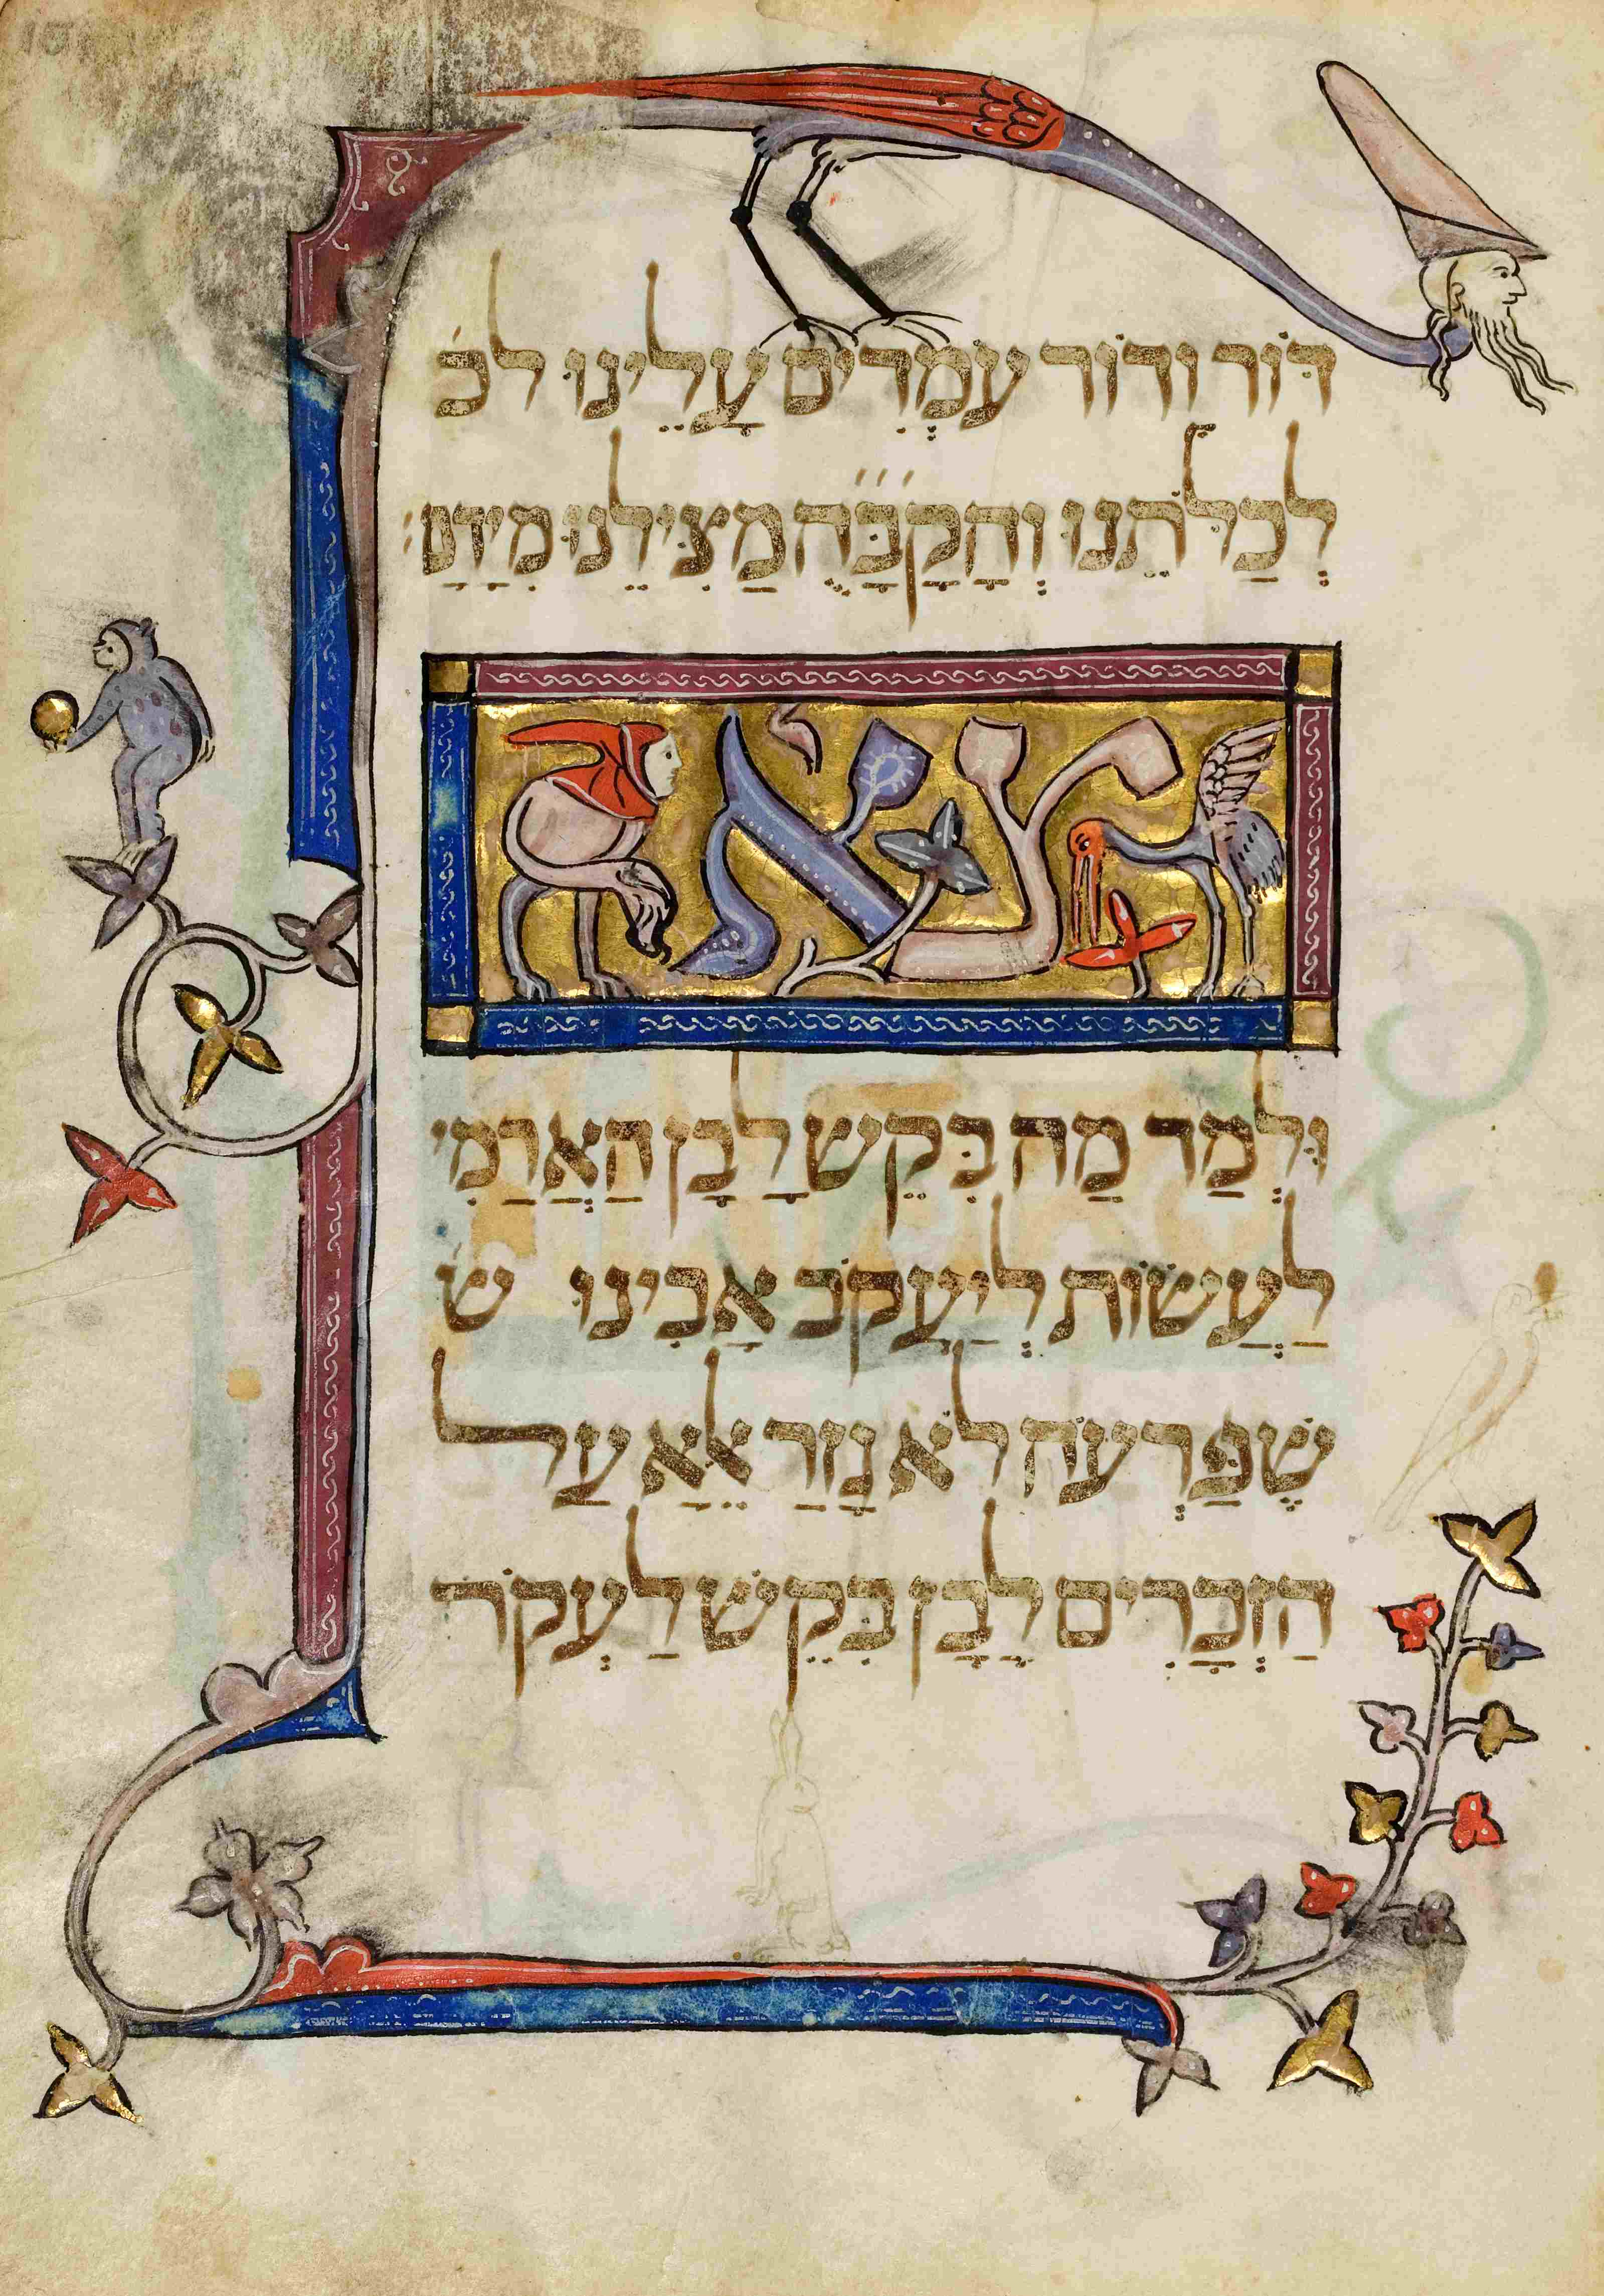 דּוֹר וָדוֹר עֹמְדִים עָלֵינוּ לכ
לְכַלֹּתֵנוּ וְהַקָבָּ״ה מַצִּילֵנוּ מִיָדָם׃
צא
וּלְמַד מַה בִּקֵּשׁ לָבָן הַאֲרַמִי
לַעֲשׂוֹת לְיַעֲקֹב אָבִינוּ ש
שֶׁפַּרְעֹה לֹא גָזַר אֶלָא עַל
הַזְּכָרִים לָבָן בִּקֵּשׁ לַעְקֹר